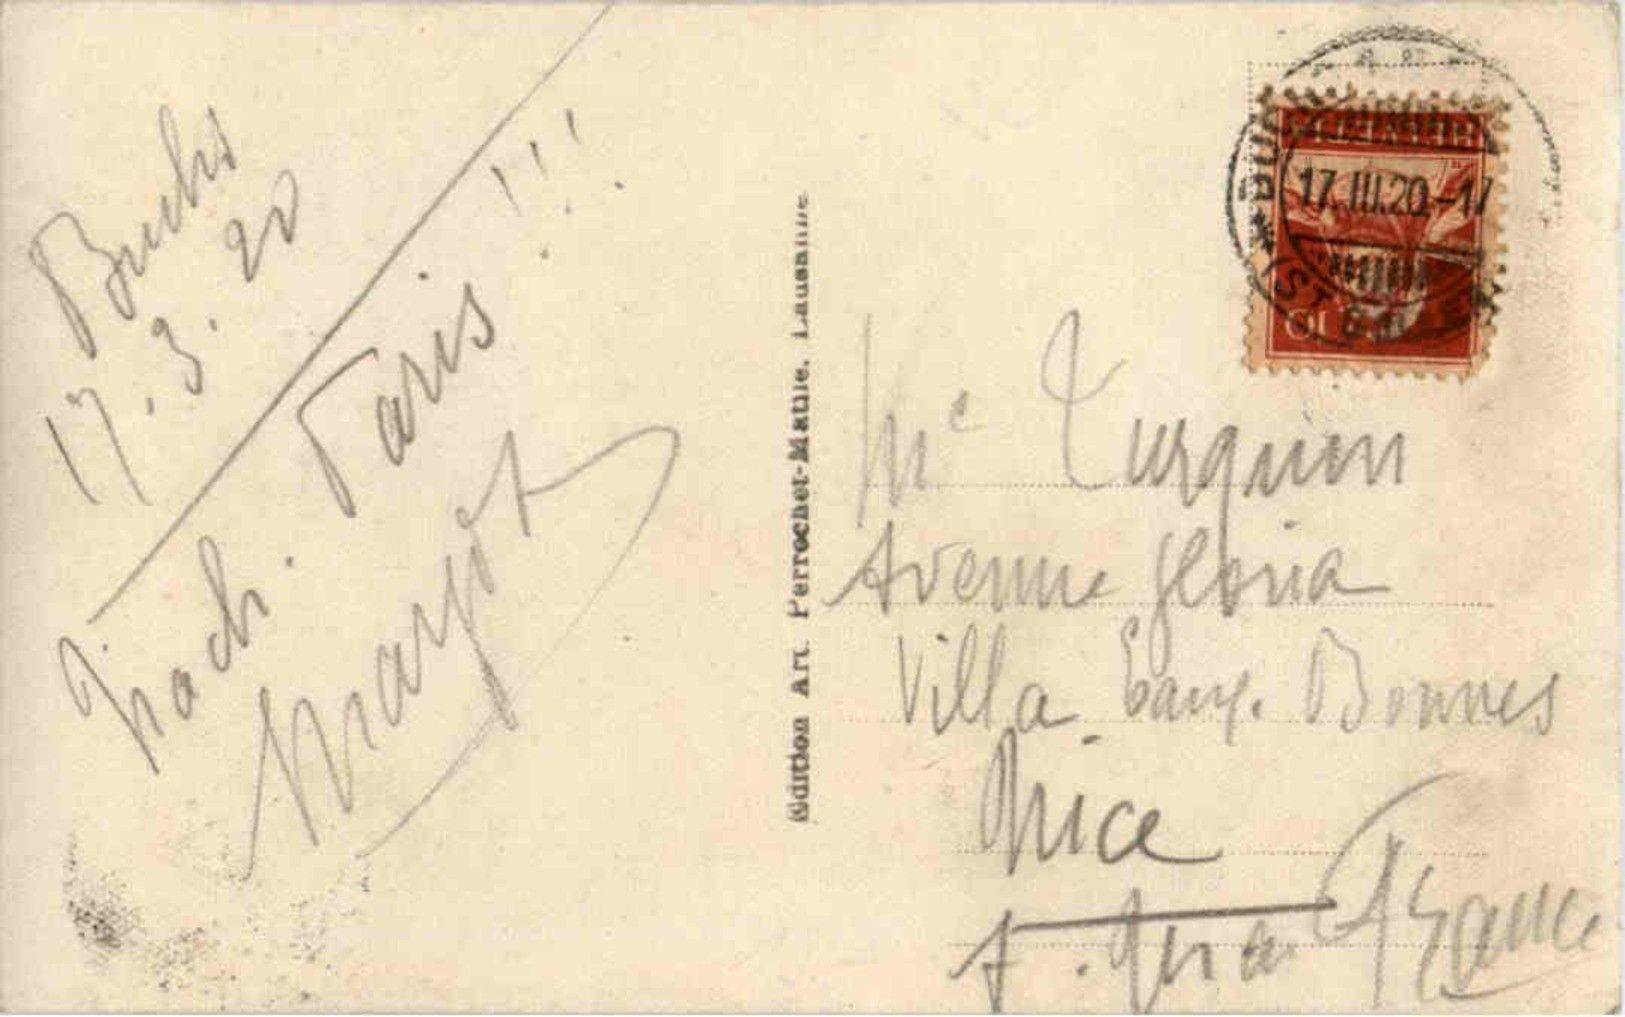 Buchs
17.3.20
nach. Paris !!!
Margot
Edition Art. Perrochet-Matile, Lausanne
17.III.20.-17
10
Me Turquin
Avenue gloria
Villa Bonnes
Nice
France